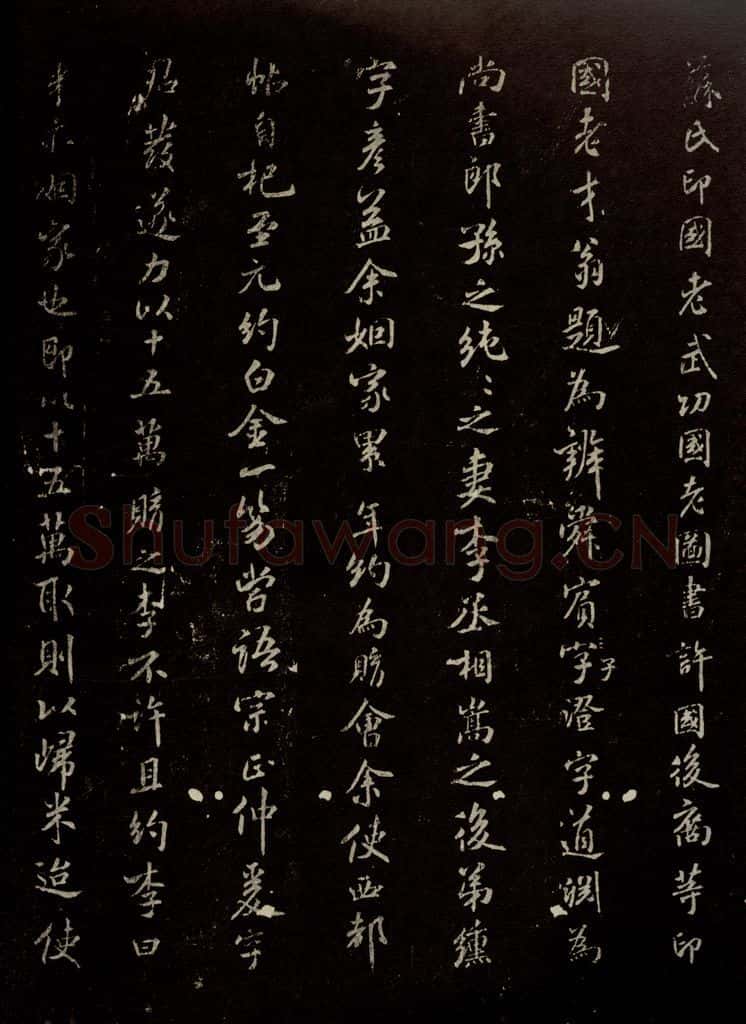 蘇氏印國老武功國老圖書許國後裔等印
國老才翁題為辨舜賓字子澄字道淵為
尚書郎孫之純〻之妻李丞相嵩之後弟纁
字彥益余姻家累年約為賂會余使西都
帖自杞至元約白金一笏嘗語宗正仲爰字
君發遂力以十五萬賂之李不許且約李曰
米姻家也即以十五萬取則以歸米迨使
Shufawang.CN